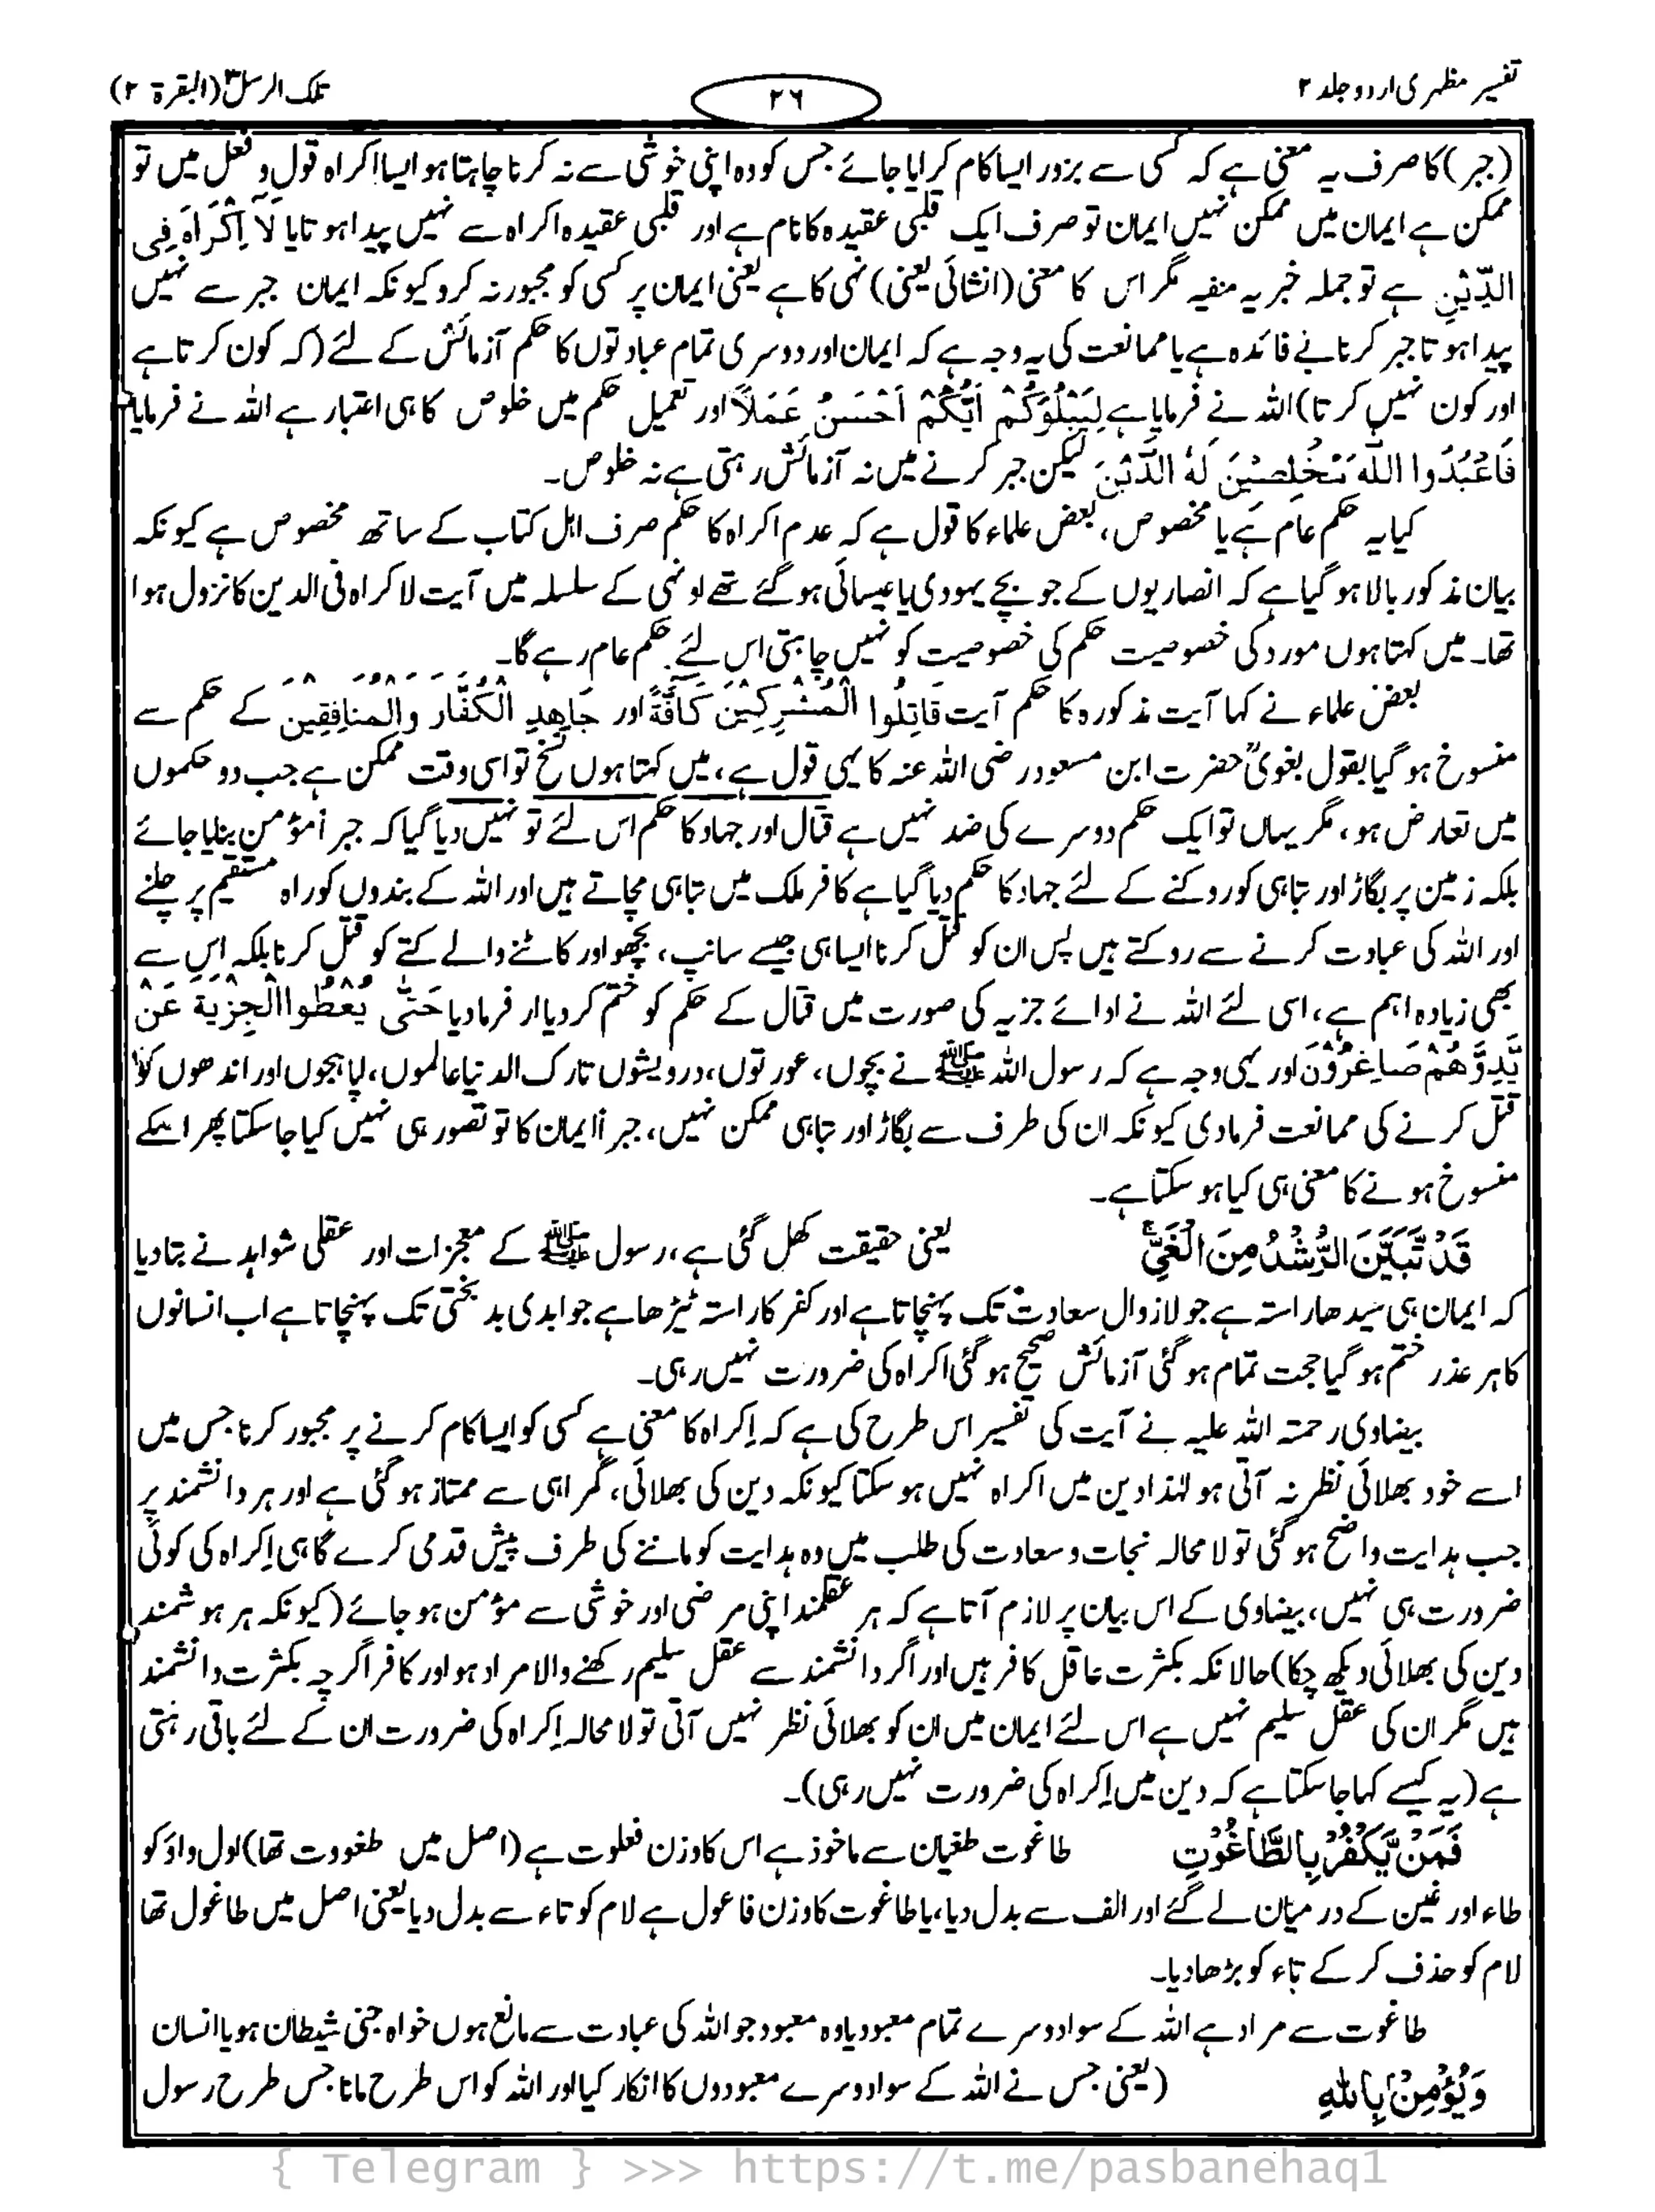 تفسیر مظہری اردو جلد ۲
۲۶
تلک الرسل ۳ (البقرۃ ۲)
(جبر) کا صرف یہ معنی ہے کہ کسی سے بزور ایسا کام کرایا جائے جس کو وہ اپنی خوشی سے نہ کرنا چاہتا ہو ایسا اکراہ قول و فعل میں تو
ممکن ہے ایمان میں ممکن نہیں ایمان تو صرف ایک قلبی عقیدہ کا نام ہے اور قلبی عقیدہ اکراہ سے نہیں پیدا ہوتا یا لَا اِکْرَاہَ فِی
الدِّیْنِ ہے تو جملہ خبریہ منفیہ مگر اس کا معنی (انشائی یعنی) نہی کا ہے یعنی ایمان پر کسی کو مجبور نہ کرو کیونکہ ایمان جبر سے نہیں
پیدا ہوتا جبر کرنا بے فائدہ ہے یا ممانعت کی یہ وجہ ہے کہ ایمان اور دوسری تمام عبادتوں کا حکم آزمائش کے لئے (کہ کون کرتا ہے
اور کون نہیں کرتا) اللہ نے فرمایا ہے لِیَبْلُوَکُمْ اَیُّکُمْ اَحْسَنُ عَمَلًا اور تعمیل حکم میں خلوص کا ہی اعتبار ہے اللہ نے فرمایا
فَاعْبُدُوا اللّٰہَ مُخْلِصِیْنَ لَہُ الدِّیْنَ لیکن جبر کرنے میں نہ آزمائش رہتی ہے نہ خلوص۔
کیا یہ حکم عام ہے یا مخصوص، بعض علماء کا قول ہے کہ عدم اکراہ کا حکم صرف اہل کتاب کے ساتھ مخصوص ہے کیونکہ
بیان مذکور بالا ہو گیا ہے کہ انصاریوں کے جو بچے یہودی یا عیسائی ہو گئے تھے اونہی کے سلسلہ میں آیت لا اکراہ فی الدین کا نزول ہوا
تھا۔ میں کہتا ہوں مورد کی خصوصیت حکم کی خصوصیت کو نہیں چاہتی اس لئے حکم عام رہے گا۔
بعض علماء نے کہا آیت مذکورہ کا حکم آیت قَاتِلُوا الْمُشْرِکِیْنَ کَافَّۃً اور جَاھِدِ الْکُفَّارَ وَالْمُنَافِقِیْنَ کے حکم سے
منسوخ ہو گیا بقول بغویؒ حضرت ابن مسعود رضی اللہ عنہ کا یہی قول ہے، میں کہتا ہوں نسخ تو اسی وقت ممکن ہے جب دو حکموں
میں تعارض ہو، مگر یہاں تو ایک حکم دوسرے کی ضد نہیں ہے قتال اور جہاد کا حکم اس لئے تو نہیں دیا گیا کہ جبراً مؤمن بنایا جائے
بلکہ زمین پر بگاڑ اور تباہی کو روکنے کے لئے جہاد کا حکم دیا گیا ہے کافر ملک میں تباہی مچاتے ہیں اور اللہ کے بندوں کو راہ مستقیم پر چلنے
اور اللہ کی عبادت کرنے سے روکتے ہیں پس ان کو قتل کرنا ایسا ہی جیسے سانپ، بچھو اور کاٹنے والے کتے کو قتل کرنا بلکہ اس سے
بھی زیادہ اہم ہے، اسی لئے اللہ نے ادائے جزیہ کی صورت میں قتال کے حکم کو ختم کر دیا ار فرما دیا حَتّٰی یُعْطُوا الْجِزْیَۃَ عَنْ
یَّدٍ وَّھُمْ صَاغِرُوْنَ اور یہی وجہ ہے کہ رسول اللہ ﷺ نے بچوں، عورتوں، درویشوں تارک الدنیا عالموں، اپاہجوں اور اندھوں کو
قتل کرنے کی ممانعت فرما دی کیونکہ ان کی طرف سے بگاڑ اور تباہی ممکن نہیں، جبراً ایمان کا تو تصور ہی نہیں کیا جا سکتا پھر اسکے
منسوخ ہونے کا معنی ہی کیا ہو سکتا ہے۔
قَدْ تَّبَیَّنَ الرُّشْدُ مِنَ الْغَیِّ یعنی حقیقت کھل گئی ہے، رسول ﷺ کے معجزات اور عقلی شواہد نے بتا دیا
کہ ایمان ہی سیدھا راستہ ہے جو لازوال سعادت تک پہنچاتا ہے اور کفر کا راستہ ٹیڑھا ہے جو ابدی بد بختی تک پہنچاتا ہے اب انسانوں
کا ہر عذر ختم ہو گیا حجت تمام ہو گئی آزمائش صحیح ہو گئی اکراہ کی ضرورت نہیں رہی۔
بیضاوی رحمتہ اللہ علیہ نے آیت کی تفسیر اس طرح کی ہے کہ اِکراہ کا معنی ہے کسی کو ایسا کام کرنے پر مجبور کرنا جس میں
اسے خود بھلائی نظر نہ آتی ہو لہٰذا دین میں اکراہ نہیں ہو سکتا کیونکہ دین کی بھلائی، گمراہی سے ممتاز ہو گئی ہے اور ہر دانشمند پر
جب ہدایت واضح ہو گئی تو لا محالہ نجات و سعادت کی طلب میں وہ ہدایت کو ماننے کی طرف پیش قدمی کرے گا ہی اِکراہ کی کوئی
ضرورت ہی نہیں، بیضاوی کے اس بیان پر لازم آتا ہے کہ ہر عقلمند اپنی مرضی اور خوشی سے مؤمن ہو جائے (کیونکہ ہر ہوشمند
دین کی بھلائی دیکھ چکا) حالانکہ بکثرت عاقل کافر ہیں اور اگر دانشمند سے عقل سلیم رکھنے والا مراد ہو اور کافر اگرچہ بکثرت دانشمند
ہیں مگر ان کی عقل سلیم نہیں ہے اس لئے ایمان میں ان کو بھلائی نظر نہیں آتی تو لا محالہ اِکراہ کی ضرورت ان کے لئے باقی رہتی
ہے (یہ کیسے کہا جا سکتا ہے کہ دین میں اِکراہ کی ضرورت نہیں رہی)۔
فَمَنْ یَّکْفُرْ بِالطَّاغُوْتِ طاغوت طغیان سے ماخوذ ہے اس کا وزن فعلوت ہے (اصل میں طغووت تھا) اول واؤ کو
طاء اور غین کے درمیان لے گئے اور الف سے بدل دیا، یا طاغوت کا وزن فاعول ہے لام کو تاء سے بدل دیا یعنی اصل میں طاغول تھا
لام کو حذف کر کے تاء کو بڑھا دیا۔
طاغوت سے مراد ہے اللہ کے سوا دوسرے تمام معبود یا وہ معبود جو اللہ کی عبادت سے مانع ہوں خواہ جنی شیطان ہو یا انسان
وَیُؤْمِنْ بِاللّٰہِ (یعنی جس نے اللہ کے سوا دوسرے معبودوں کا انکار کیا اور اللہ کو اس طرح مانا جس طرح رسول
{ Telegram } >>> https://t.me/pasbanehaq1